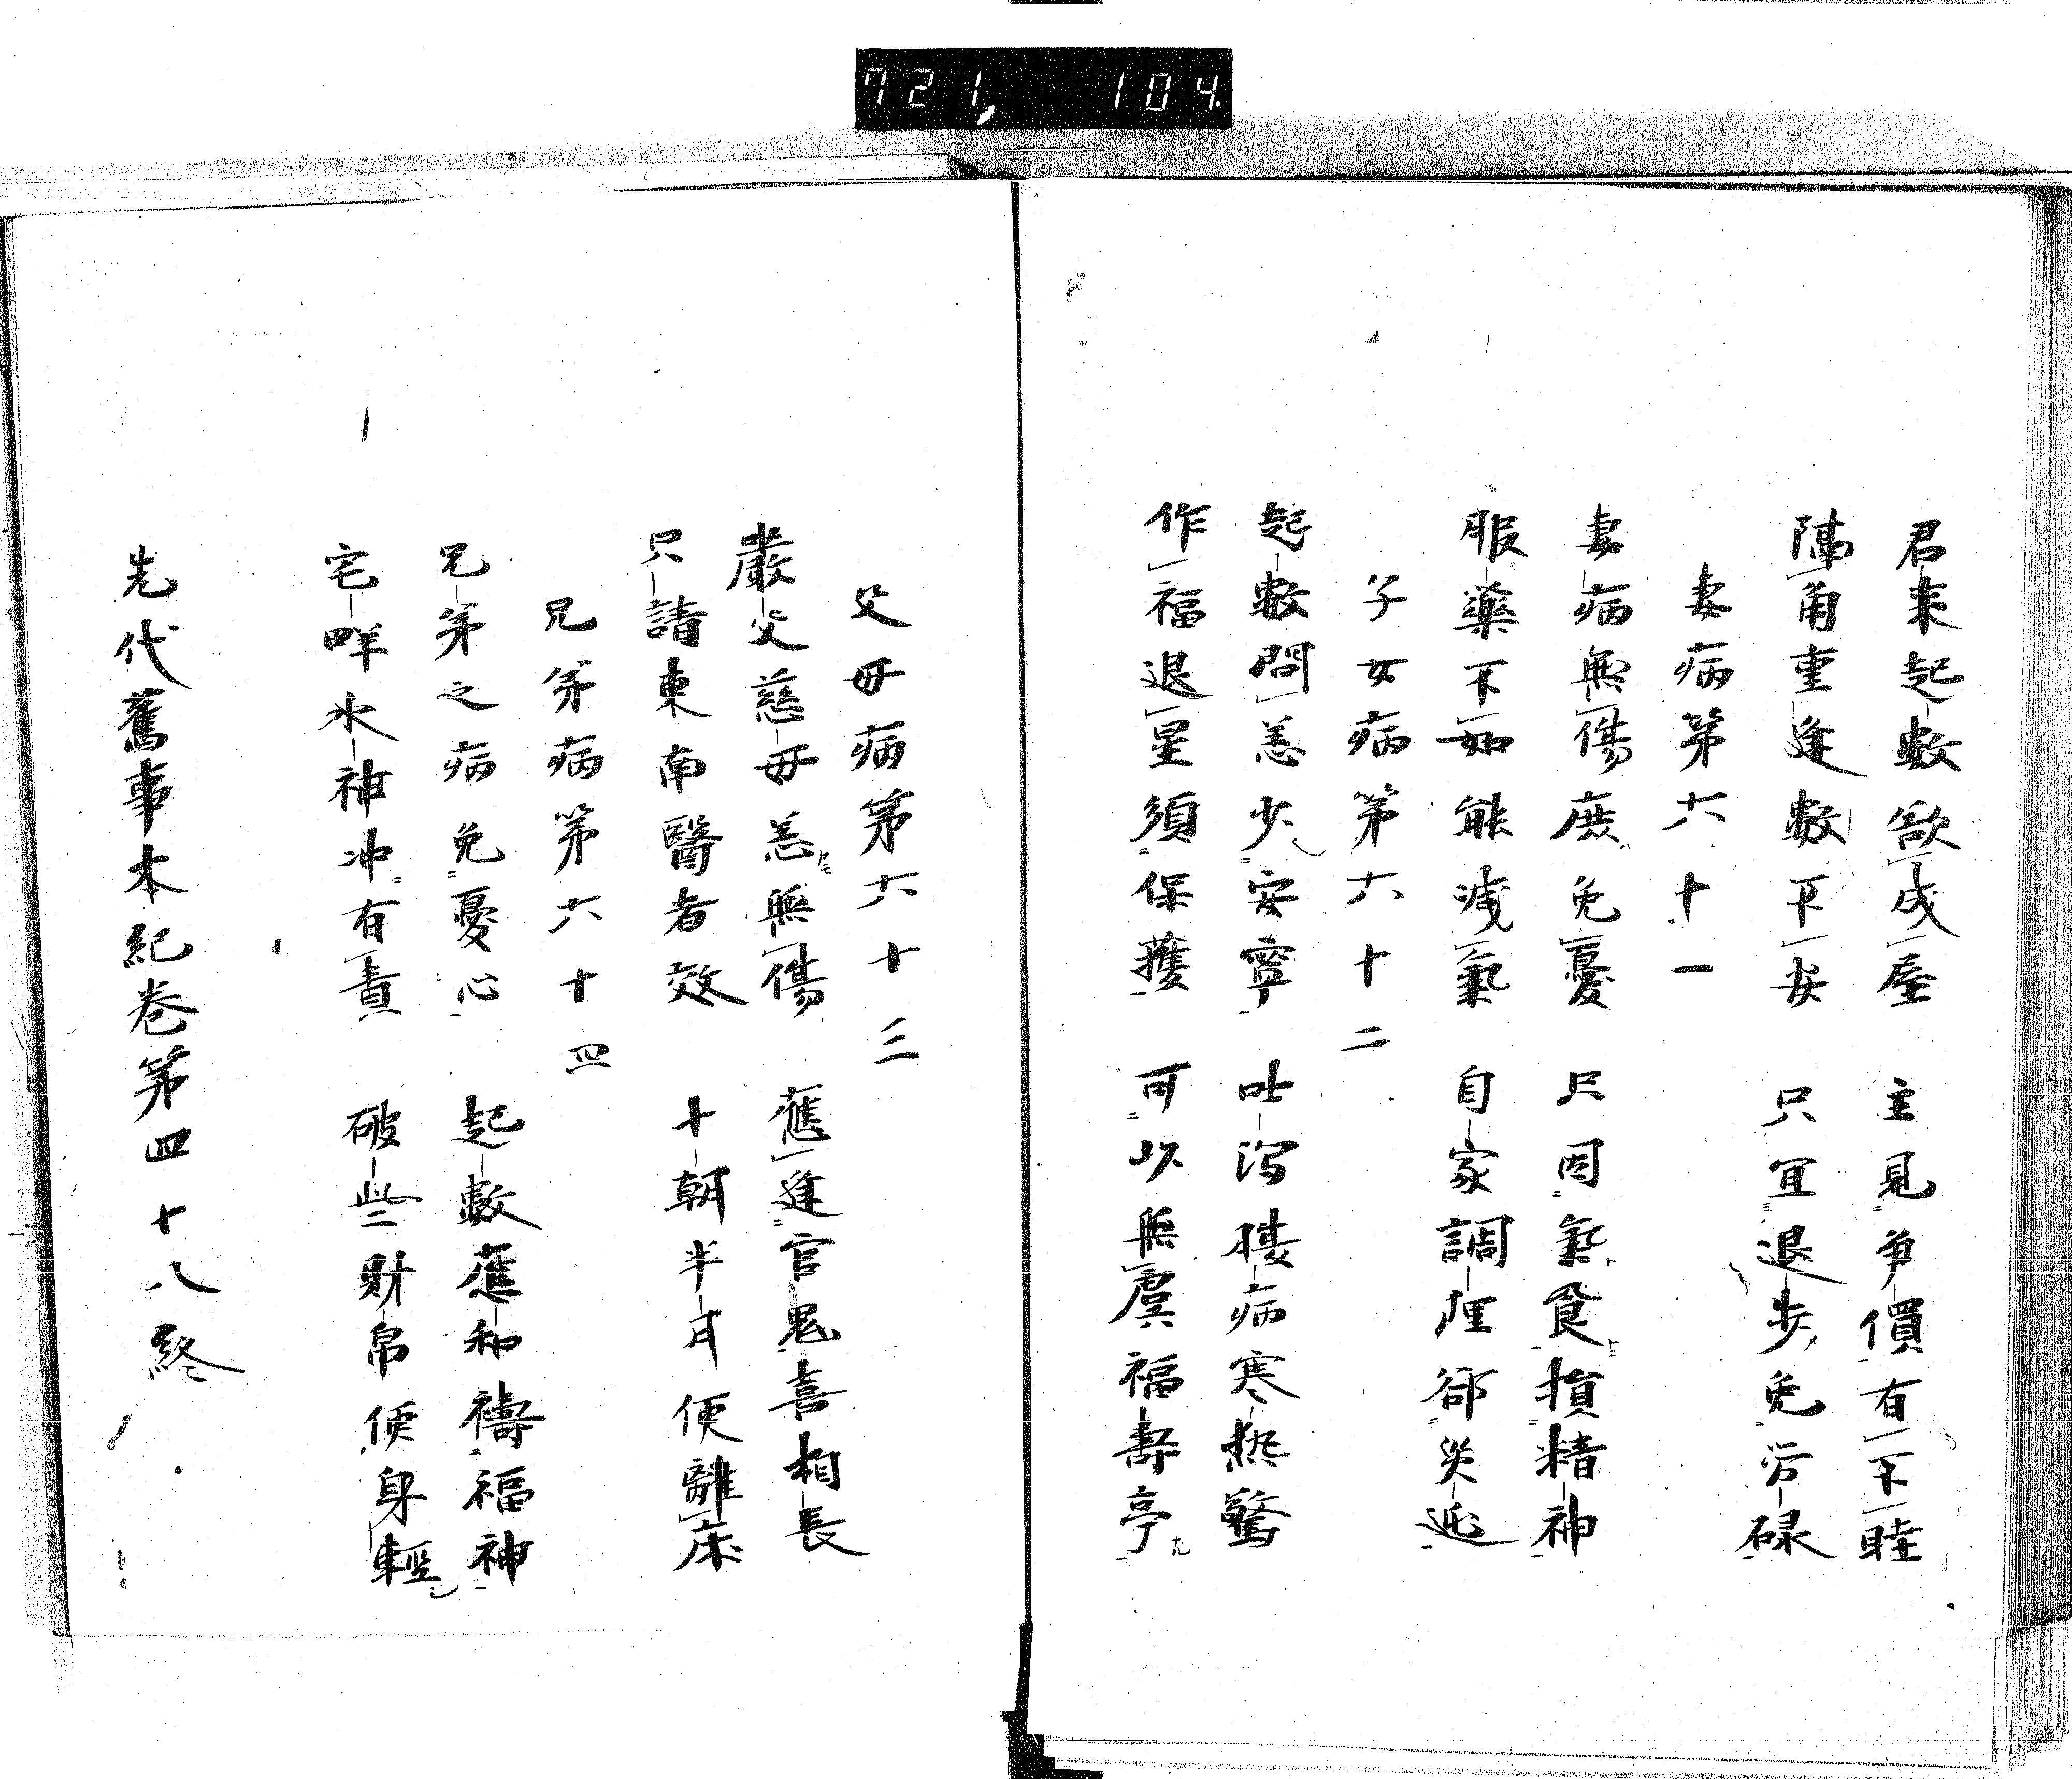 721, 104.
君来起數欲成屋 主見争價有不睦
隔角重逢數下安 只宜退步免労碌
妻病第六十一
妻病無傷庶免憂 只因氣食損精神
服藥不如能減氣 自家調理卻災迍
子女病第六十二
起數問恙少安寧 吐瀉榐病寒熱驚
作福退星須保護 可以無虞福壽亭
父母病第六十三
嚴父慈母恙無傷 應逢官鬼喜相長
只請東南醫者效 十朝半月便離床
兄弟病第六十四
兄弟之病免憂心 起數應和禱福神
宅畔水神冲有責 破些財帛便身輕
先代舊事本紀卷第四十八終